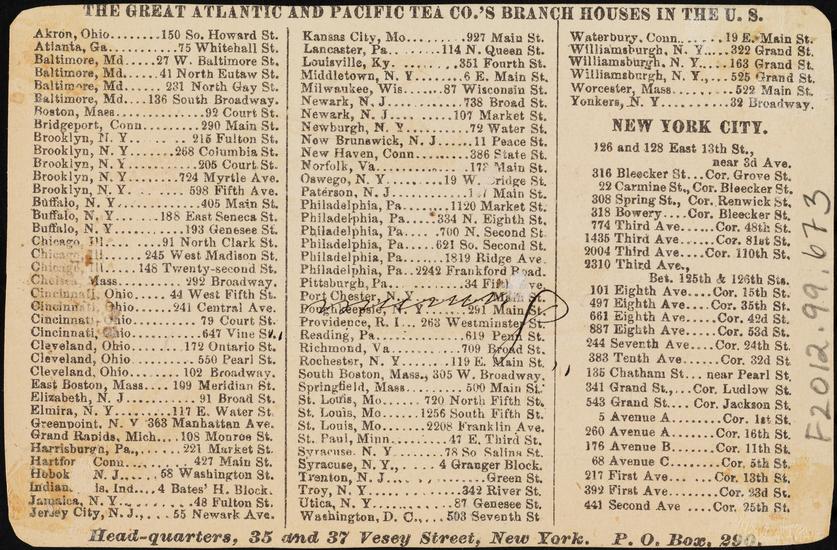 THE GREAT ATLANTIC AND PACIFIC TEA CO.'S BRANCH HOUSES IN THE U. S.
Akron, Ohio......150 So. Howard St.
Atlanta, Ga..........75 Whitehall St.
Baltimore, Md....27 W. Baltimore St.
Baltimore, Md.....41 North Eutaw St.
Baltimore, Md......231 North Gay St.
Baltimore, Md....136 South Broadway.
Boston, Mass..............92 Court St.
Bridgeport, Conn.........290 Main St.
Brooklyn, N. Y..........215 Fulton St.
Brooklyn, N. Y........268 Columbia St.
Brooklyn, N. Y...........205 Court St.
Brooklyn, N. Y........724 Myrtle Ave.
Brooklyn, N. Y.........598 Fifth Ave.
Buffalo, N. Y.............405 Main St.
Buffalo, N. Y......188 East Seneca St.
Buffalo, N. Y..........193 Genesee St.
Chicago, Ill........91 North Clark St.
Chicago, Ill......245 West Madison St.
Chicago, Ill.....148 Twenty-second St.
Chelsea, Mass..........292 Broadway.
Cincinnati, Ohio.....44 West Fifth St.
Cincinnati, Ohio.....241 Central Ave.
Cincinnati, Ohio..........79 Court St.
Cincinnati, Ohio..........647 Vine St.
Cleveland, Ohio........172 Ontario St.
Cleveland, Ohio..........550 Pearl St.
Cleveland, Ohio........102 Broadway.
East Boston, Mass....109 Meridian St.
Elizabeth, N. J...........91 Broad St.
Elmira, N. Y.........117 E. Water St.
Greenpoint, N. Y 363 Manhattan Ave.
Grand Rapids, Mich...108 Monroe St.
Harrisburg, Pa.,.......221 Market St.
Hartfor Conn..........427 Main St.
Hobok N. J.....58 Washington St.
Indian is. Ind...4 Bates' H. Block.
Jamaica, N. Y...........48 Fulton St.
Jersey City, N. J.,....55 Newark Ave.
Kansas City, Mo.........927 Main St.
Lancaster, Pa........114 N. Queen St.
Louisville, Ky..........351 Fourth St.
Middletown, N. Y.......6 E. Main St.
Milwaukee, Wis......87 Wisconsin St.
Newark, N. J..........738 Broad St.
Newark, N. J.........107 Market St.
Newburgh, N. Y.........72 Water St.
New Brunswick, N. J.....11 Peace St.
New Haven, Conn........386 State St.
Norfolk, Va............ Main St.
Oswego, N. Y........19 W. Bridge St.
Paterson, N. J.......... Main St.
Philadelphia, Pa......1120 Market St.
Philadelphia, Pa.....334 N. Eighth St.
Philadelphia, Pa.....700 N. Second St.
Philadelphia, Pa....621 So. Second St.
Philadelphia, Pa......1819 Ridge Ave.
Philadelphia, Pa..2242 Frankford Road.
Pittsburg, Pa..........34 Fifth Ave.
Port Chester, N. Y........Main St.
Poughkeepsie, N. Y......291 Main St.
Providence, R. I...263 Westminster St.
Reading, Pa.............619 Penn St.
Richmond, Va..........709 Broad St.
Rochester, N. Y......119 E. Main St.
South Boston, Mass., 305 W. Broadway.
Springfield, Mass........500 Main St.
St. Louis, Mo......720 North Fifth St.
St. Louis, Mo.....1256 South Fifth St.
St. Louis, Mo......2208 Franklin Ave.
St. Paul, Minn......47 E. Third St.
Syracuse, N. Y.......78 So Salina St.
Syracuse, N. Y.,....4 Granger Block.
Trenton, N. J..............Green St.
Troy, N. Y..............342 River St.
Utica, N. Y...........87 Genesee St.
Washington, D. C.....503 Seventh St
Waterbury, Conn......19 E. Main St.
Williamsburgh, N. Y....322 Grand St.
Williamsburgh, N. Y....163 Grand St.
Williamsburgh, N. Y.,...525 Grand St.
Worcester, Mass.........522 Main St.
Yonkers, N. Y.........32 Broadway.
NEW YORK CITY.
126 and 128 East 13th St.,
near 3d Ave.
316 Bleecker St...Cor. Grove St.
22 Carmine St., Cor. Bleecker St.
308 Spring St., Cor. Renwick St.
318 Bowery....Cor. Bleecker St.
774 Third Ave.....Cor. 48th St.
1435 Third Ave.....Coz. 81st St.
2004 Third Ave....Cor. 110th St.
2310 Third Ave.,
Bet. 125th & 126th Sts.
101 Eighth Ave....Cor. 15th St.
497 Eighth Ave....Cor. 35th St.
661 Eighth Ave....Cor. 42d St.
887 Eighth Ave....Cor. 53d St.
244 Seventh Ave....Cor. 24th St.
383 Tenth Ave.....Cor. 32d St.
135 Chatham St...near Pearl St.
341 Grand St.,...Cor. Ludlow St.
543 Grand St....Cor. Jackson St.
5 Avenue A........Cor. 1st St.
260 Avenue A.....Cor. 16th St.
176 Avenue B.....Cor. 11th St.
68 Avenue C.......Cor. 5th St.
217 First Ave......Cor. 13th St.
392 First Ave......Cor. 23d St.
441 Second Ave....Cor. 25th St.
Head-quarters, 35 and 37 Vesey Street, New York. P. O. Box, 290.
F2012.99.673